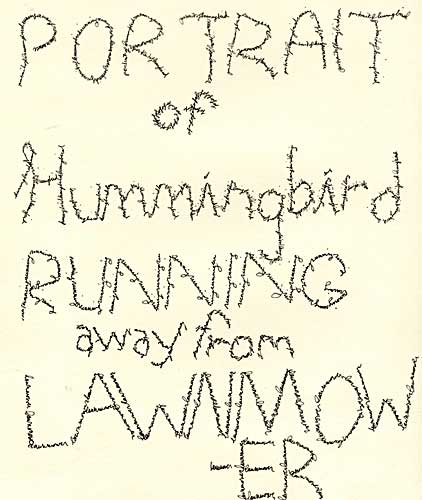 PORTRAIT
of
Hummingbird
RUNNING
away from
LAWNMOW
-ER